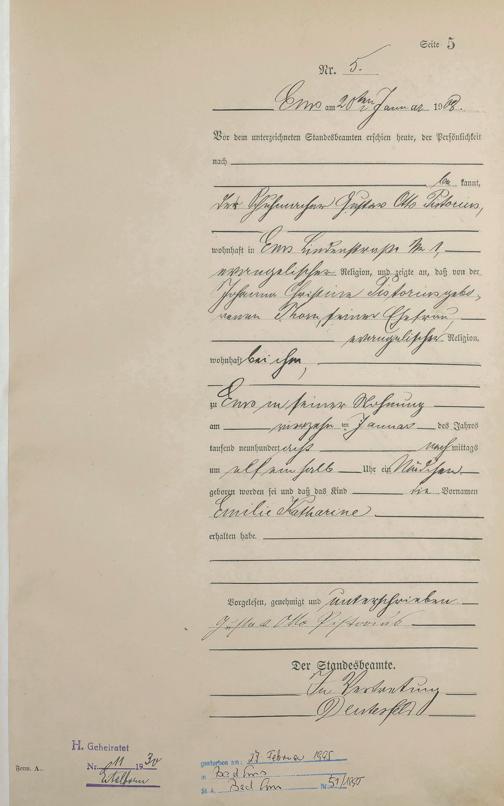 Seite 5
Nr. 5.
Ems am 20ten Januar 1908.
Vor dem unterzeichneten Standesbeamten erschien heute, der Persönlichkeit
nach
be kannt,
der Schuhmacher Gustav Otto Pistorius,
wohnhaft in Ems Lindenstraße No 1,
evangelischer Religion, und zeigte an, daß von der
Johanna Christine Pistorius gebo-
renen Thorn, seiner Ehefrau,
evangelischer Religion,
wohnhaft bei ihm,
zu Ems in seiner Wohnung
am vierzehn ten Januar des Jahres
tausend neunhundert acht nach mittags
um elf einhalb Uhr ein Mädchen
geboren worden sei und daß das Kind die Vornamen
Emilie Katharine
erhalten habe.
Vorgelesen, genehmigt und unterschrieben
Gustav Otto Pistorius
Der Standesbeamte.
In Vertretung
H. Geheiratet
Nr. 11 19
gestorben am: 27 Februar 1995
in Bad Ems
St. A. Bad Ems Nr. 51/1995
Form. A.